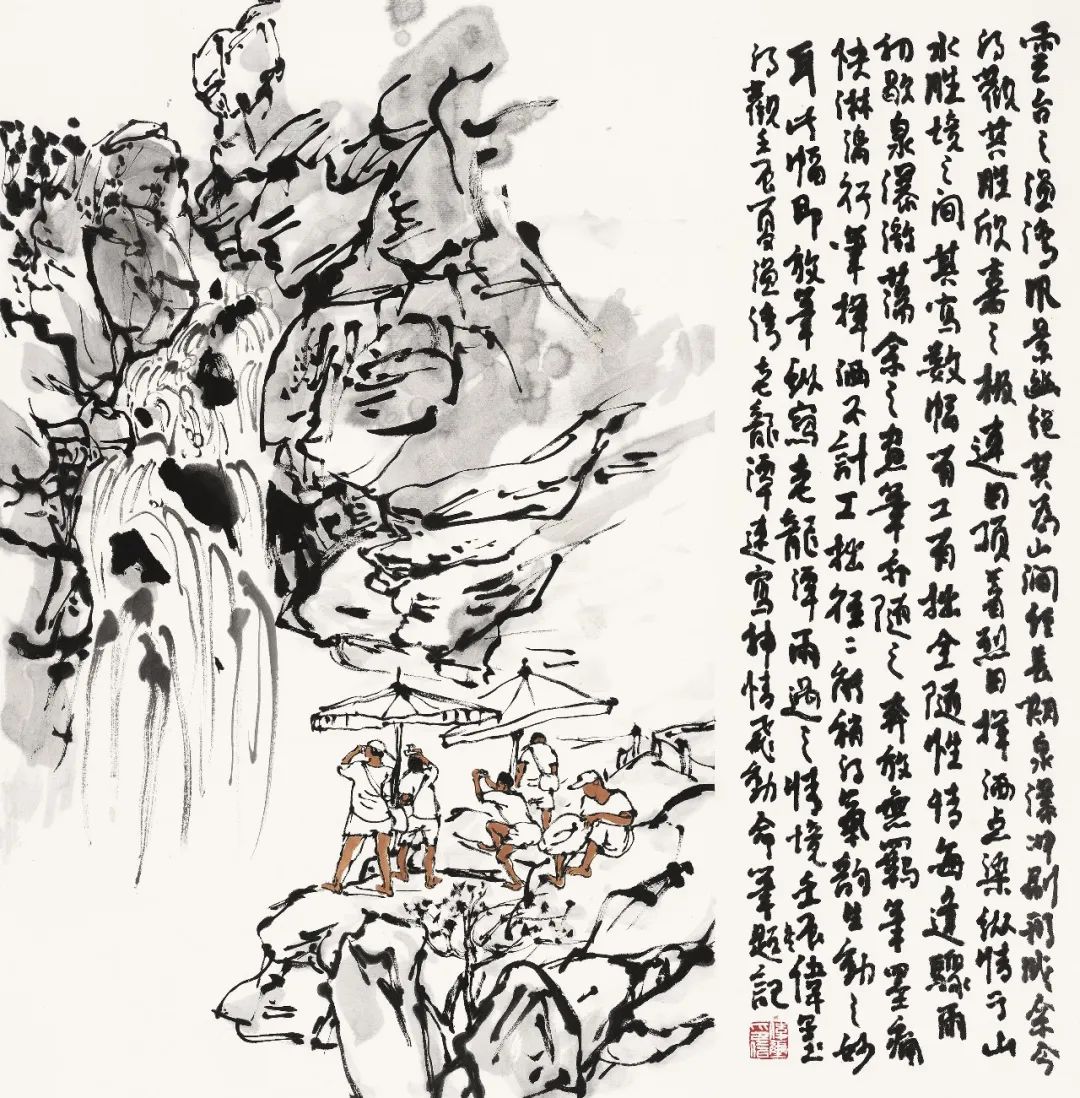 雲台之漫湾风景幽绝其为山涧经長期泉瀑冲刷形成余今
得觀其胜欣喜之极連日顶着烈日挥洒点染纵情于山
水胜境之间其寫数幅有工有拙全随性情每逢驟雨
初歇泉瀑激荡余之畫筆亦随之奔放無羁筆墨痛
快淋漓行筆揮洒不計工拙往二能稍得氣韵生動之妙
耳此幅即放筆纵寫老龍潭雨過之情境壬辰偉玺
得觀壬辰夏漫湾老龍潭速寫抻情飛動命筆題記